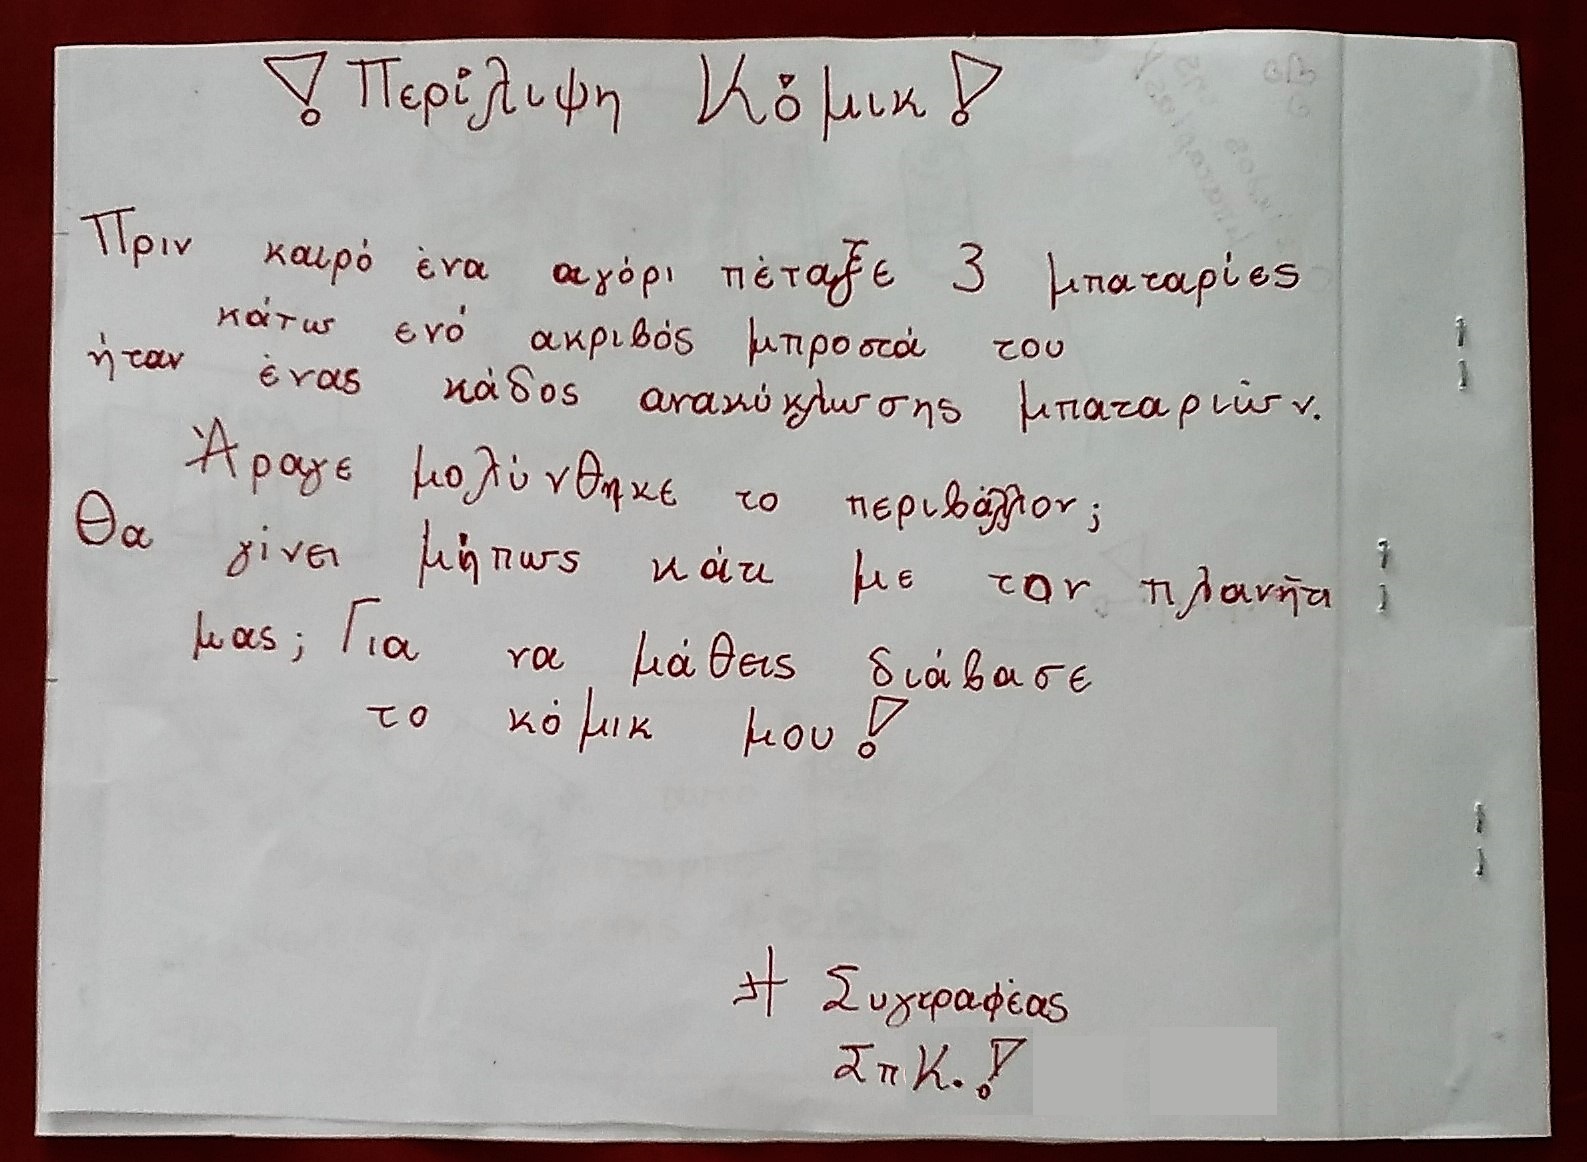 ! Περίλιψη Κόμικ!
Πριν καιρό ένα αγόρι πέταξε 3 μπαταρίες
κάτω ενό ακριβός μπροστά του
ήταν ένας κάδος ανακύκλωσης μπαταριών.
Άραγε μολύνθηκε το περιβάλλον;
Θα γίνει μήπως κάτι με τον πλανήτη
μας; Για να μάθεις διάβασε
το κόμικ μου!
Συγγραφέας
Σπ Κ.!